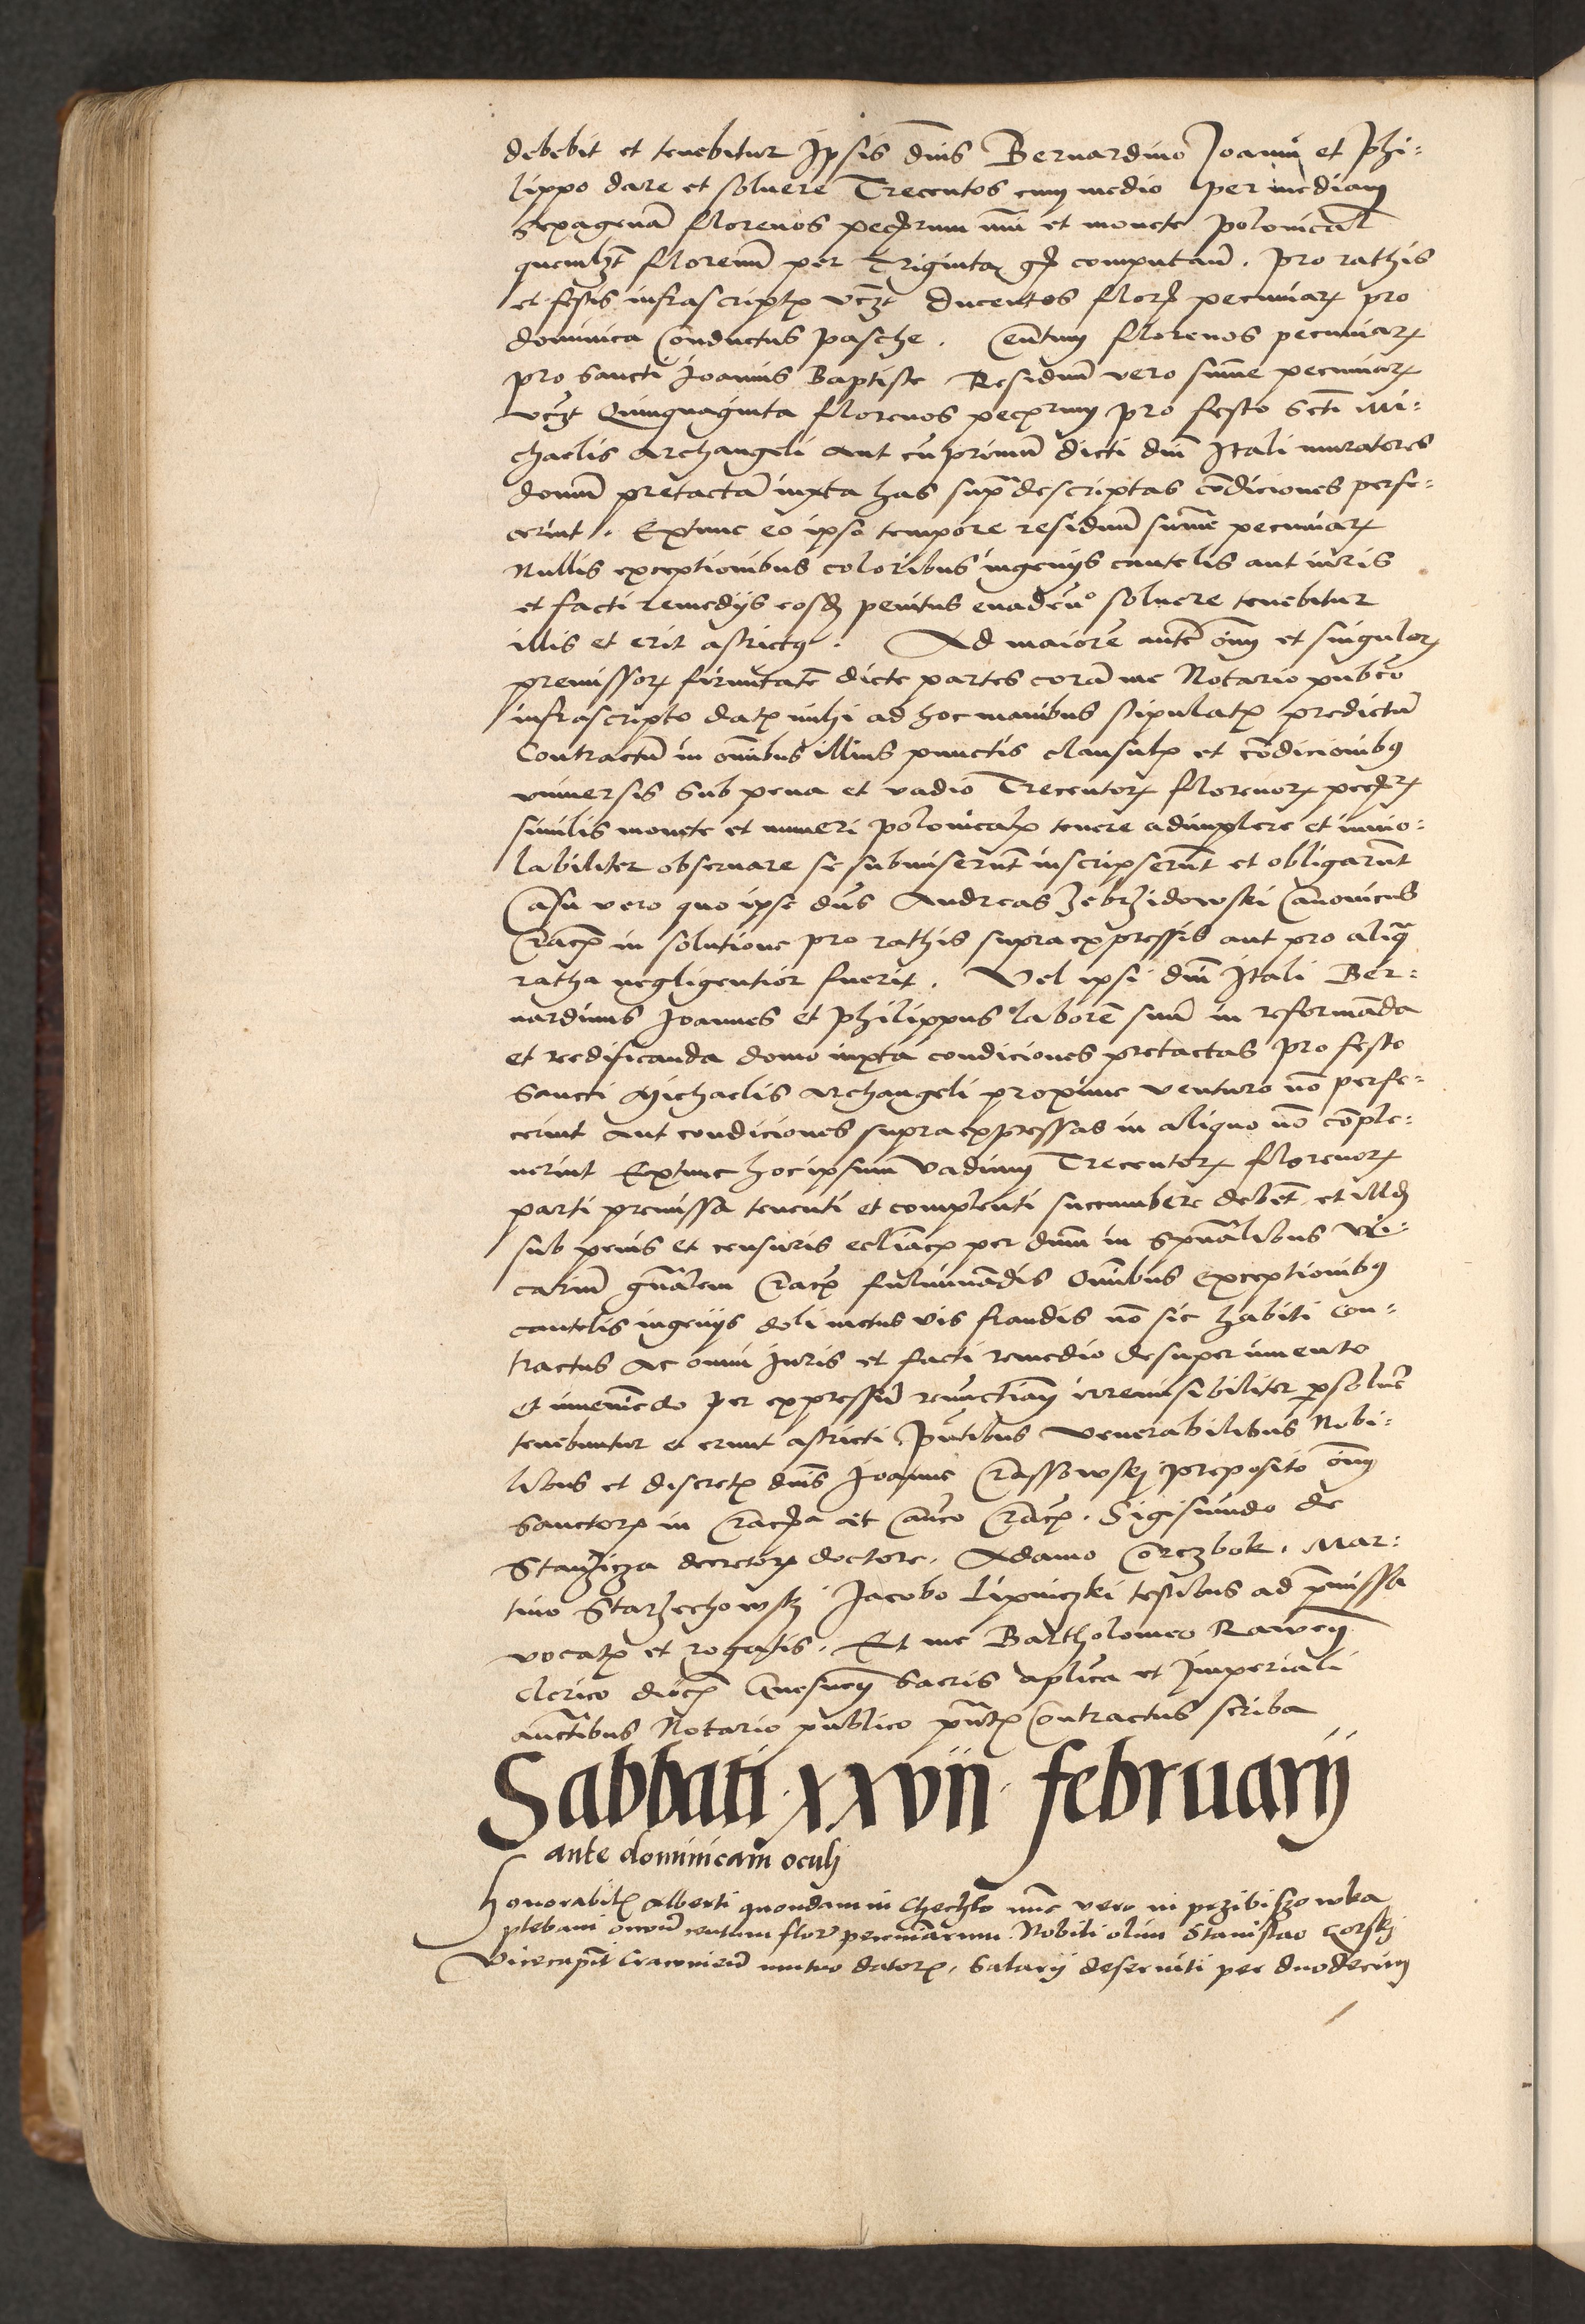 debebit et tenebitur Ipsis dnis Bernardino Joanni et Phi=
lippo dare et soluere Trecentos cum medio per mediam
Sexagenã florenos pecuniarum nũi et monete polonical
quemlꝫt florenũ per Triginta gꝝ computanđ. pro rathis
et festis infrascriptꝭ vcꝫt Ducentos florꝭ pecuniarꝝ pro
dominica Conductus pasche. Centum florenos pecuniarꝝ
pro sancti Joannis Baptiste Residuũ vero sum̃e pecuniarꝝ
vcꝫt Quinquaginta florenos pecꝝrum pro festo Scti Mi=
chaelis Archangeli aut cũprimũ dicti dnĩ Itali muratores
domũ pretactã iuxta has supradescriptas cõdiciones perfe=
cerint. Extunc eo ipso tempore residuũ sum̃e pecuniarꝝ
Nullis exceptionibus coloribus ingenijs cautelis aut iuris
et facti remedijs eosđ penitus euadenđo soluere tenebitur
illis et erit astrictꝰ. Ad maiorẽ autẽ oĩm et singulorꝝ
premissorꝝ firmitatẽ dicte partes corã me Notario pubco
infrascripto datꝭ mihi ad hoc manibus stipulatꝭ predictũ
Contractũ in oñibus illius punctis clausulꝭ et cõdicionibꝰ
vniuersis Sub pena et vadio Trecentorꝝ florenorꝝ pecꝝrꝝ
similis monete et numeri polonicalꝭ tenere adimplere et inuio=
labiliter obseruare se submiserũt inscripserũt et obligarũt
Casu vero quo ipse dñs Andreas Zebrzidowski Canonicus
Cracꝭ in solutione pro rathis supraexpressis aut pro aliqͣ
ratha negligentior fuerit. Vel ipsi dnĩ Itali Ber=
nardinus Joannes et Philippus laborẽ suũ in reformãda
et reedificanda domo iuxta condiciones pretactas pro festo
Sancti Michaelis Archangeli proxime venturo nõ perfe=
cerint Aut condiciones supraexpressas in aliquo nõ cõple=
uerint Extunc hoc ipsum vadium Trecentorꝝ florenorꝝ
parti premissa tenenti et complenti succumbere debẽt et illđ
sub penis et censuris eccliacꝭ per dnm in Spũalibus Vi=
carium gñalem Cracꝭ fulminãdis Omĩbus exceptionibꝰ
cautelis ingenijs doli metus vis fraudis nõ sic habiti con=
tractus ac omni Juris et facti remedio desuper inuento
et inueniẽdo per expressũ renũctiam irremisibiliter psoluẽ
tenebuntur et erunt astricti Pñtibus Venerabilibus Nobi=
libus et discretꝭ dnis Joanne Crassowskj preposito oĩm
Sanctorꝝ in Cracꝝa ac Cañco Cracꝭ. Sigismũdo de
Stanzicza decretorꝝ doctore. Adamo Orczbok. Mar=
tino Starzechowskj Jacobo Lipniczki testibus ad pmissa
vocatꝭ et rogatis. Et me Bartholomeo Raweñ
Clerico diocꝭ Gnesneñ Sacris aplica et Imperiali
auctibus Notario publico pñtꝭ Contractus scriba
Sabbati · xxvii · februarij
ante dominicam oculj
Honorabilꝭ Alberti quondam in Chechlo nũc vero in przibiszowka
plebani centum florꝭ pecuniarum Nobili olim Stanislao Gorskj
Vicecapit Cracouien mutuo datorꝝ. Salarij deseruiti per duodecim